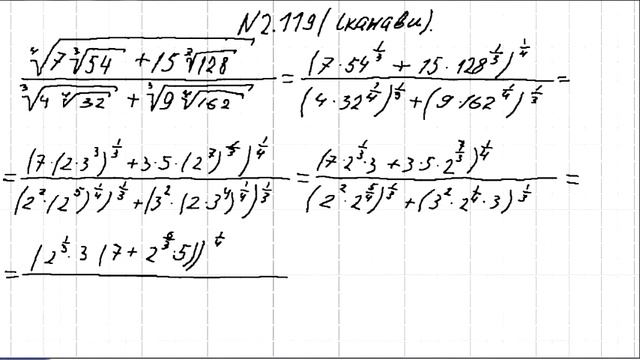 N2.119 (Сканави).
\frac{\sqrt[4]{7\sqrt[3]{54}+15\sqrt[3]{128}}}{\sqrt[3]{4\sqrt[4]{32}}+\sqrt[3]{9\sqrt[4]{162}}} = \frac{(7·54^{\frac{1}{3}}+15·128^{\frac{1}{3}})^{\frac{1}{4}}}{(4·32^{\frac{1}{4}})^{\frac{1}{3}}+(9·162^{\frac{1}{4}})^{\frac{1}{3}}} =
= \frac{(7·(2·3^3)^{\frac{1}{3}}+3·5·(2^7)^{\frac{1}{3}})^{\frac{1}{4}}}{(2^2·(2^5)^{\frac{1}{4}})^{\frac{1}{3}}+(3^2·(2·3^4)^{\frac{1}{4}})^{\frac{1}{3}}} = \frac{(7·2^{\frac{1}{3}}·3+3·5·2^{\frac{7}{3}})^{\frac{1}{4}}}{(2^2·2^{\frac{5}{4}})^{\frac{1}{3}}+(3^2·2^{\frac{1}{4}}·3)^{\frac{1}{3}}} =
= (2^{\frac{1}{3}}·3(7+2^{\frac{6}{3}}·5))^{\frac{1}{4}}